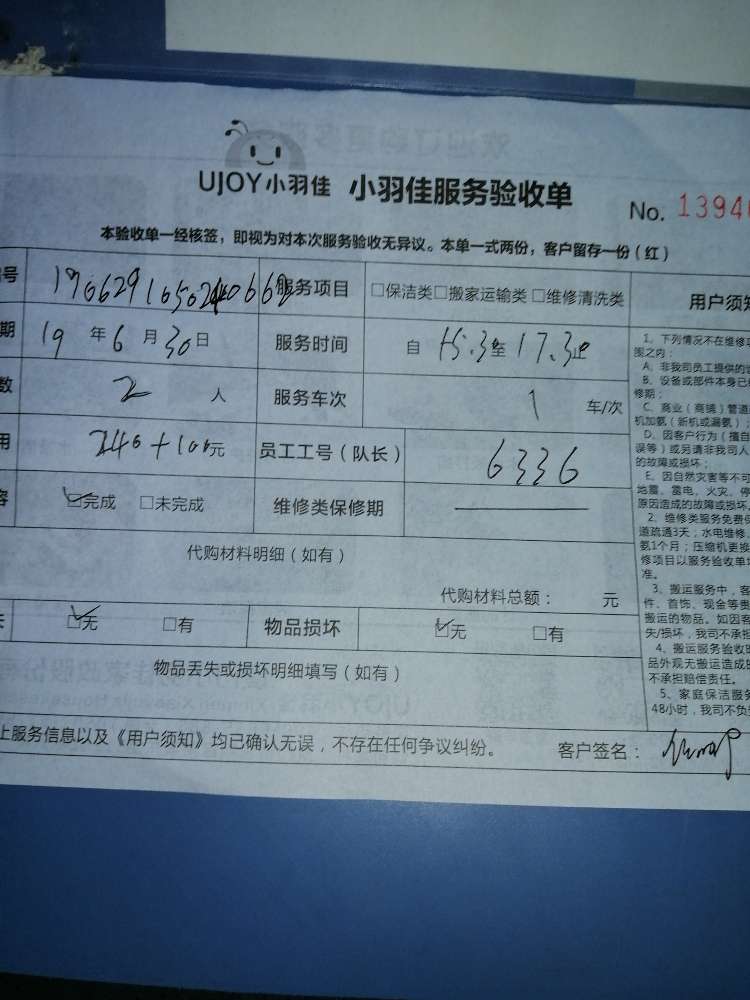 UJOY小羽佳 小羽佳服务验收单
No. 1394
本验收单一经核签，即视为对本次服务验收无异议。本单一式两份，客户留存一份（红）
号 服务项目 □保洁类□搬家运输类□维修清洗类 用户须知
期 19 年 6 月 30 日 服务时间 自 15.3 至 17.3 止
数 2 人 服务车次 1 车/次
用 240+100元 员工工号（队长） 6336
☑完成 □未完成 维修类保修期 ——
代购材料明细（如有）
代购材料总额： 元
☑无 □有 物品损坏 ☑无 □有
物品丢失或损坏明细填写（如有）
上服务信息以及《用户须知》均已确认无误，不存在任何争议纠纷。 客户签名：
1、下列情况不在维修
围之内：
A、非我司员工提供的
B、设备或部件本身已
修期；
C、商业（商铺）管道
机加氨（新机或漏氨）；
D、因客户行为（擅自
误等）或另请非我司人
的故障或损坏；
E、因自然灾害等不可
地震、雷电、火灾、停
原因造成的故障或损坏。
2、维修类服务免费保
道疏通3天；水电维修
氨1个月；压缩机更换
修项目以服务验收单
准。
3、搬运服务中，客
件、首饰、现金等贵
搬运的物品。如因客
失/损坏，我司不承担
4、搬运服务验收时
品外观无搬运造成
不承担赔偿责任。
5、家庭保洁服务
48小时，我司不负